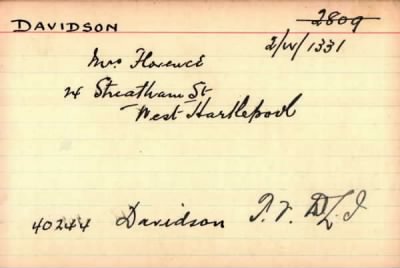 DAVIDSON 2809
2/W/1331
Mrs Florence
24 Streatham St
West Hartlepool
40244 Davidson T. F. D.L.I